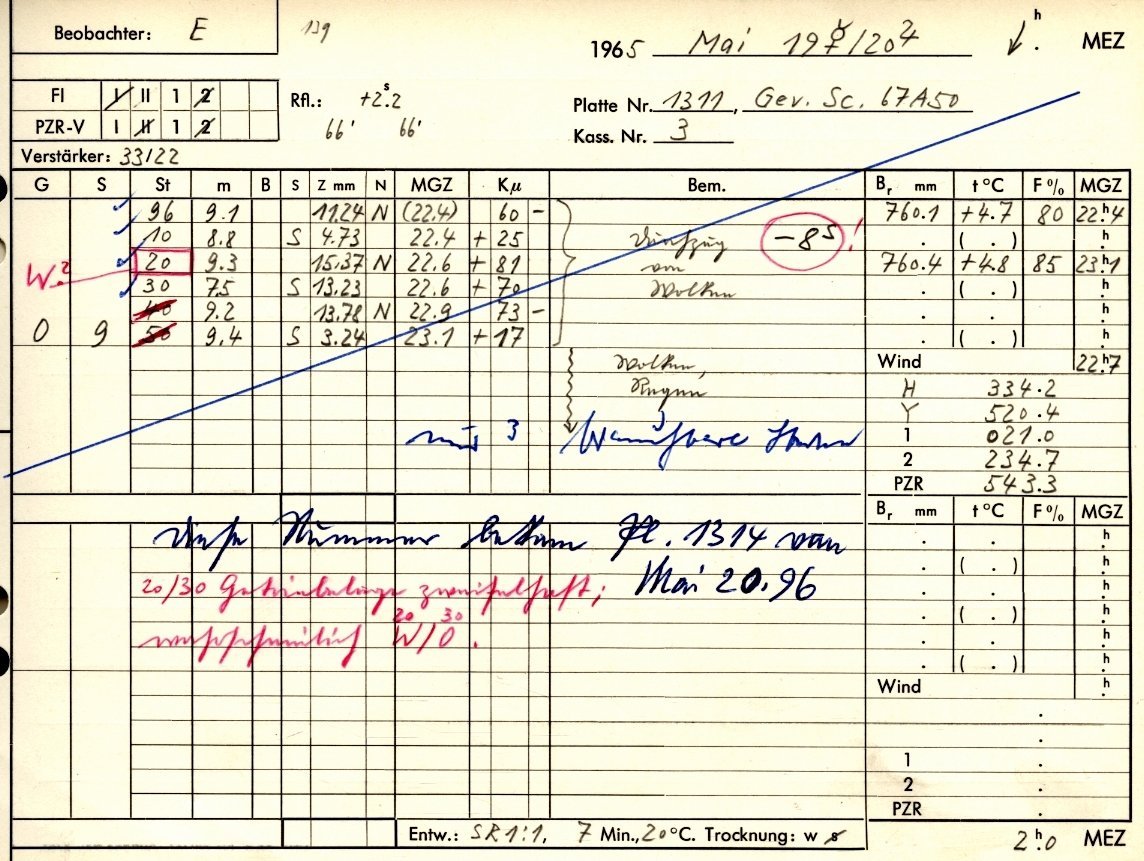 Beobachter: E 139
1965 Mai 19 ☿/20 ♃ h . MEZ
FI I II 1 2
Rfl.: +2.ˢ2
Platte Nr. 1311, Gev. Sc. 67A50
PZR-V I II 1 2
66' 66'
Kass. Nr. 3
Verstärker: 33/22
G S St m B S Z mm N MGZ Kμ Bem. Br mm t °C F% MGZ
96 9.1 11.24 N (22.4) 60 – 760.1 +4.7 80 22.ʰ4
10 8.8 S 4.73 22.4 + 25 Durchzug –8ˢ! . ( . ) h .
W? 20 9.3 15.37 N 22.6 + 81 von 760.4 +4.8 85 23.ʰ1
30 7.5 S 13.23 22.6 + 70 Wolken . ( . ) h .
40 9.2 13.78 N 22.9 73 – . . h .
0 9 50 9.4 S 3.24 23.1 + 17 ( . ) h .
Wolken, Wind 22.ʰ7
Regen H 334.2
Y 520.4
nur 3 brauchbare Sterne 1 021.0
2 234.7
PZR 543.3
Br mm t °C F% MGZ
Diese Nummer bekam Pl. 1314 von
Mai 20.96
20/30 Getriebelage zweifelhaft;
20 30
wahrscheinlich W/O.
Wind h .
1 .
2 .
PZR .
Entw.: SR 1:1, 7 Min., 20°C. Trocknung: w s
2.ʰ0 MEZ